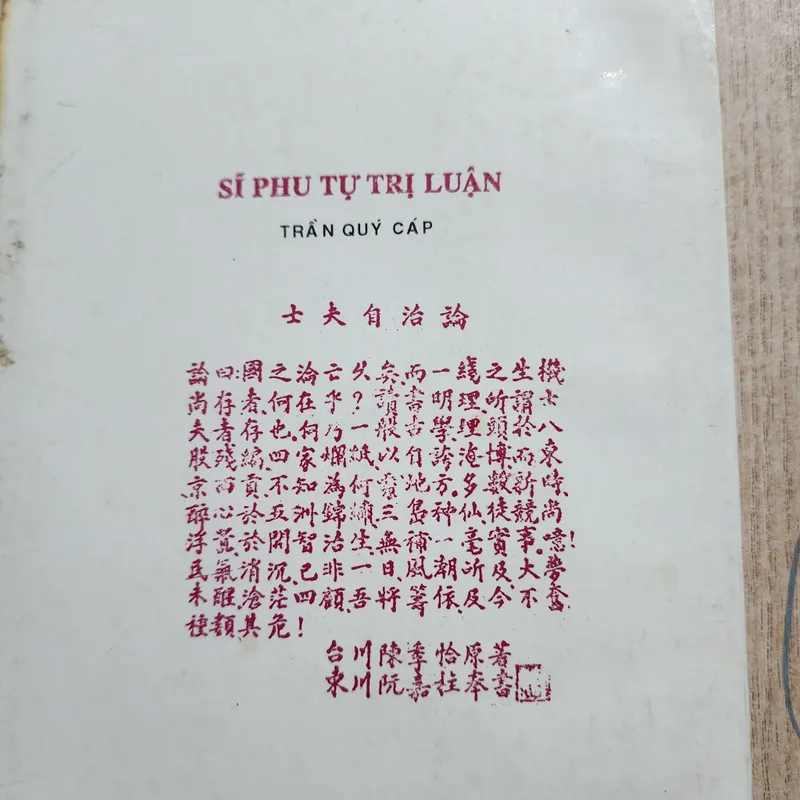 SĨ PHU TỰ TRỊ LUẬN
TRẦN QUÝ CÁP
士夫自治論
論曰:國之淪亡久矣,而一線之生機
尚存者,何在乎?讀書明理之所謂士
夫者存也,何乃一般古學,理頭於八
股殘編,四家爛紙,以自誇淹博,而東
京西貢,不知為何地方.多數新時,
醉心於五洲錦繡,三島神仙,徒競尚
浮於開智治生,無補一毫實事.噫!
民氣消沉,已非一日,風潮所及,大夢
未醒,滄茫四顧,吾將等儕,及今不奮,
種類其危!
台川陳季恰原著
東川阮嘉柱奉書